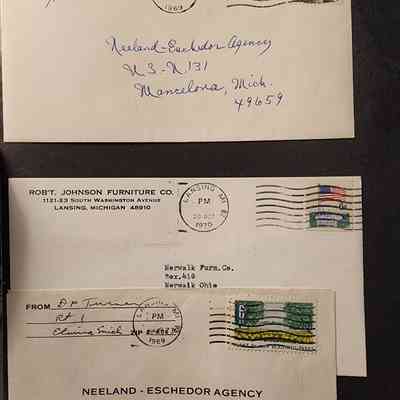 1969
Neeland-Eschedor Agency
US-N.131
Mancelona, Mich.
49659
ROB'T. JOHNSON FURNITURE CO.
1121-23 SOUTH WASHINGTON AVENUE
LANSING, MICHIGAN 48910
LANSING MI
PM
20 OCT
1970
Nerwalk Furn.Co.
Box.418
Nerwalk Ohio
FROM D P Turner
Rt 1
Elmira Mich ZIP
PM
1969
6¢
NEELAND - ESCHEDOR AGENCY